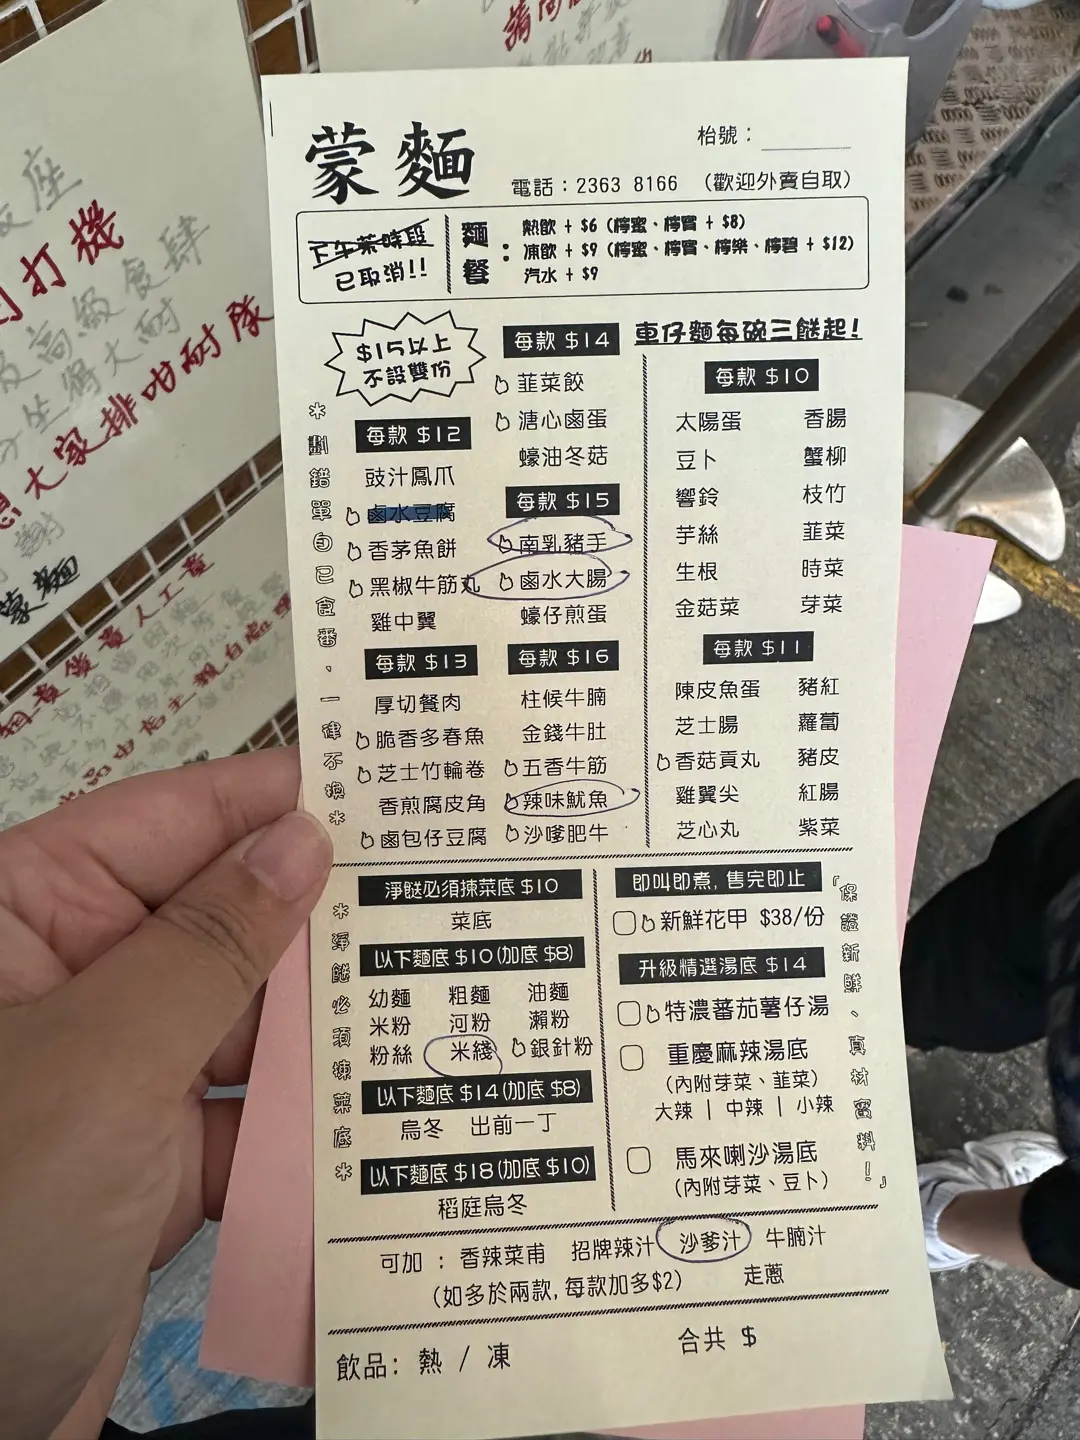 蒙麵
枱號：
電話：2363 8166 （歡迎外賣自取）
下午茶時段
已取消!!
麵餐：
熱飲 + $6 (檸蜜、檸賓 + $8)
凍飲 + $9 (檸蜜、檸賓、檸樂、檸碧 + $12)
汽水 + $9
車仔麵每碗三餸起!
$15以上
不設雙份
＊劃錯單自己食番，一律不換＊
每款 $12
豉汁鳳爪
鹵水豆腐
香茅魚餅
黑椒牛筋丸
雞中翼
每款 $13
厚切餐肉
脆香多春魚
芝士竹輪卷
香煎腐皮角
鹵包仔豆腐
每款 $14
韮菜餃
溏心鹵蛋
蠔油冬菇
每款 $15
南乳豬手
鹵水大腸
蠔仔煎蛋
每款 $16
柱候牛腩
金錢牛肚
五香牛筋
辣味魷魚
沙嗲肥牛
每款 $10
太陽蛋 香腸
豆卜 蟹柳
響鈴 枝竹
芋絲 韮菜
生根 時菜
金菇菜 芽菜
每款 $11
陳皮魚蛋 豬紅
芝士腸 蘿蔔
香菇貢丸 豬皮
雞翼尖 紅腸
芝心丸 紫菜
＊淨餸必須揀菜底＊
淨餸必須揀菜底 $10
菜底
以下麵底 $10(加底 $8)
幼麵 粗麵 油麵
米粉 河粉 瀨粉
粉絲 米綫 銀針粉
以下麵底 $14(加底 $8)
烏冬 出前一丁
以下麵底 $18(加底 $10)
稻庭烏冬
即叫即煮, 售完即止
新鮮花甲 $38/份
升級精選湯底 $14
特濃蕃茄薯仔湯
重慶麻辣湯底
(內附芽菜、韮菜)
大辣 | 中辣 | 小辣
馬來喇沙湯底
(內附芽菜、豆卜)
「保證新鮮、真材實料！」
可加 : 香辣菜甫 招牌辣汁 沙爹汁 牛腩汁
(如多於兩款, 每款加多$2) 走蔥
飲品: 熱 / 凍
合共 $
座
打機
高級食肆
坐得大耐
大家排咁耐隊
謝
蒙麵
貴貨貴人工貴
品由店主親自處理